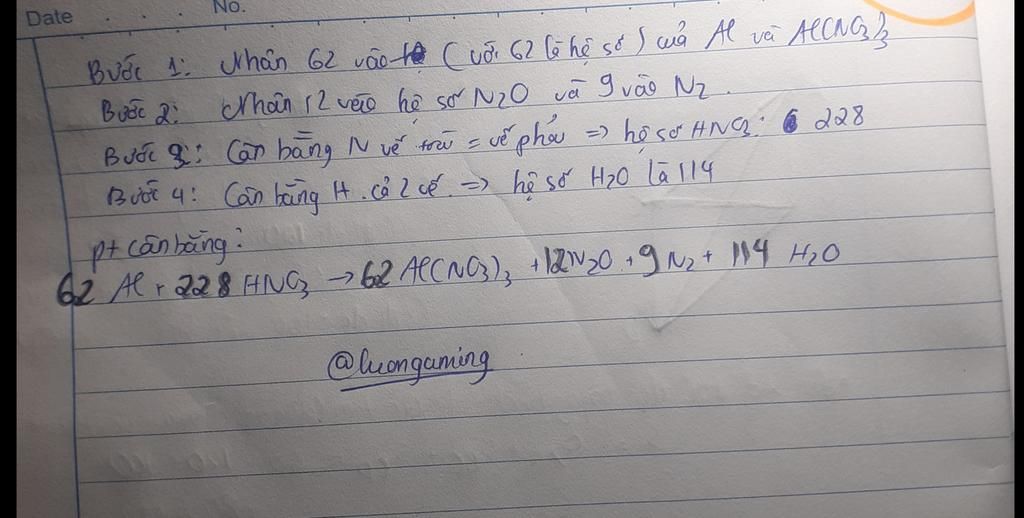 Date No.
Bước 1: Nhân 62 vào (với 62 là hệ số) của Al và Al(NO3)3
Bước 2: Nhân 12 vào hệ số N2O và 9 vào N2.
Bước 3: Cân bằng N vế trái = vế phải => hệ số HNO3: 228
Bước 4: Cân bằng H. cả 2 vế => hệ số H2O là 114
pt cân bằng:
62 Al + 228 HNO3 → 62 Al(NO3)3 + 12N2O + 9N2 + 114 H2O
@luongaming